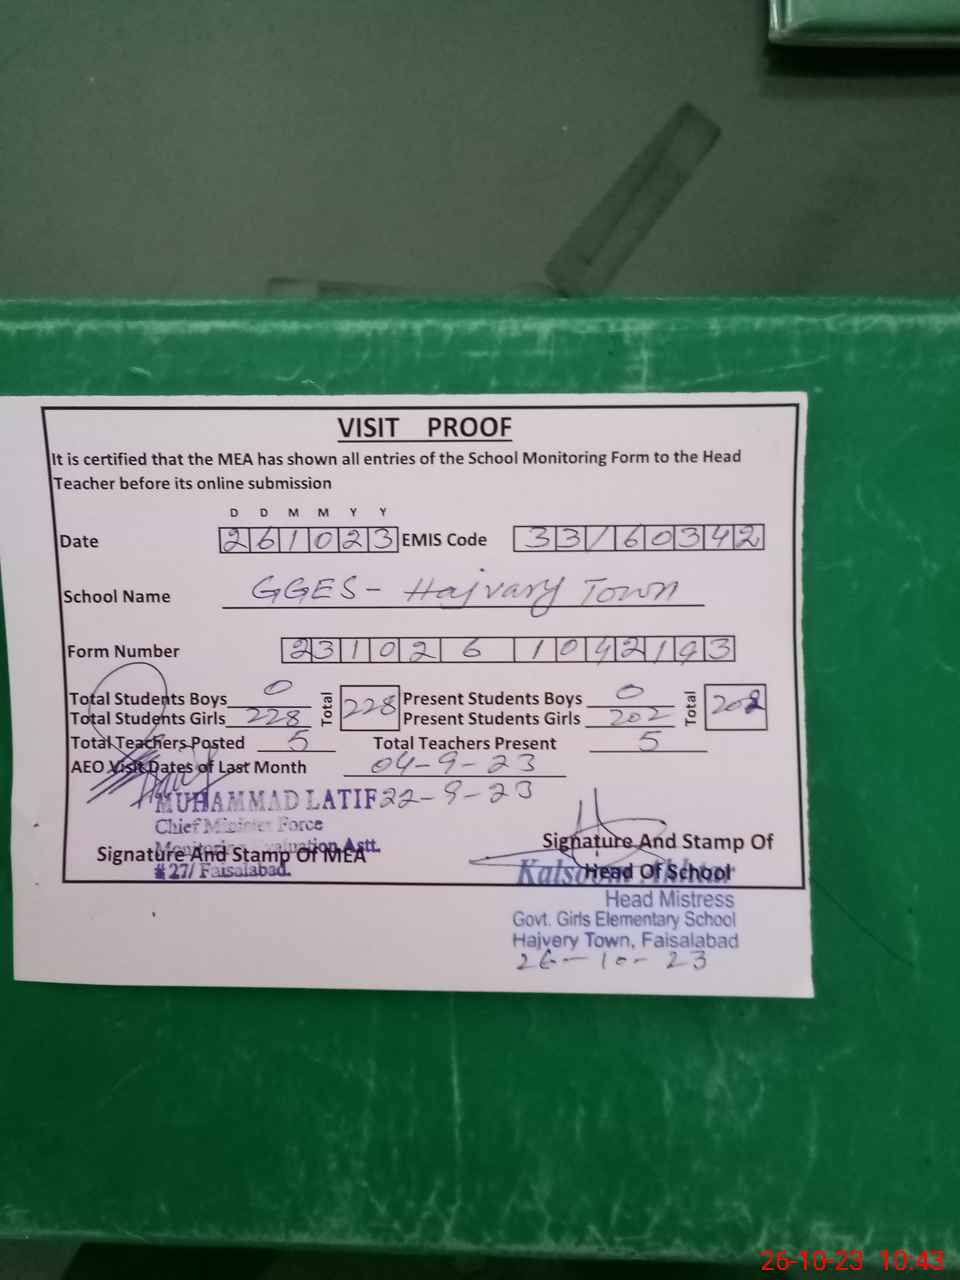 VISIT PROOF
It is certified that the MEA has shown all entries of the School Monitoring Form to the Head
Teacher before its online submission
D D M M Y Y
Date 261023 EMIS Code 33160342
School Name GGES - Hajvary Town
Form Number 2310261042193
Total Students Boys 0 Total 228 Present Students Boys 0 Total 202
Total Students Girls 228 Present Students Girls 202
Total Teachers Posted 5 Total Teachers Present 5
AEO Visit Dates of Last Month 04-9-23
MUHAMMAD LATIF 22-9-23
Chief Minister Force
Monitoring Evaluation Astt.
Signature And Stamp Of MEA
# 27/ Faisalabad.
Signature And Stamp Of
Head Of School
Head Mistress
Govt. Girls Elementary School
Hajvery Town, Faisalabad
26-10-23
26-10-23 10:43